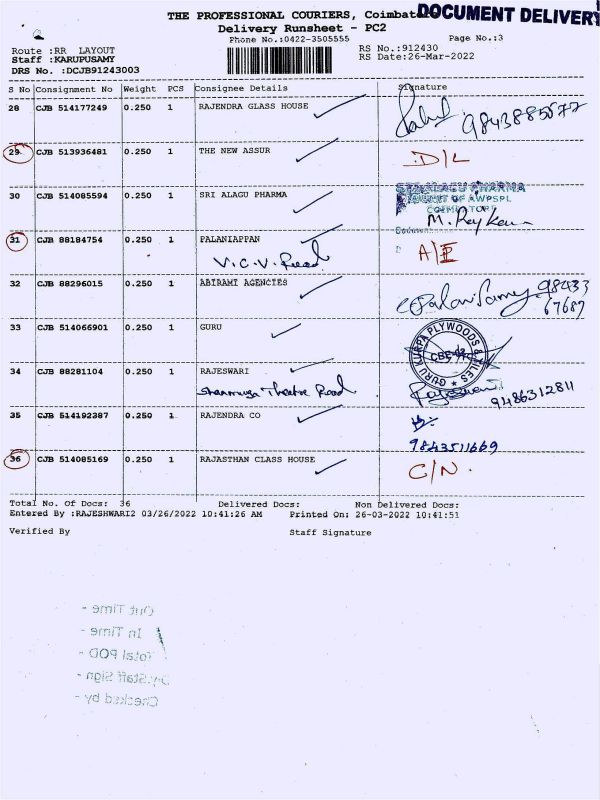 THE PROFESSIONAL COURIERS, Coimbat
DOCUMENT DELIVERY
Delivery Runsheet - PC2
Phone No.:0422-3505555
Page No.:3
Route :RR LAYOUT
RS No.:912430
Staff :KARUPUSAMY
RS Date:26-Mar-2022
DRS No. :DCJB91243003
S No Consignment No Weight PCS Consignee Details Signature
28 CJB 514177249 0.250 1 RAJENDRA GLASS HOUSE
9843885577
29 CJB 513936481 0.250 1 THE NEW ASSUR D/L
30 CJB 514085594 0.250 1 SRI ALAGU PHARMA
SRI ALAGU PHARMA
COIMBATORE
31 CJB 88184754 0.250 1 PALANIAPPAN
V.C.V. Road
32 CJB 88296015 0.250 1 ABIRAMI AGENCIES
Palanisamy 98433
67687
33 CJB 514066901 0.250 1 GURU
GURU KURPA PLYWOODS & TILES
34 CJB 88281104 0.250 1 RAJESWARI
Shanmuga Theatre Road
Rajeswari 9486312811
35 CJB 514192387 0.250 1 RAJENDRA CO
9843511669
36 CJB 514085169 0.250 1 RAJASTHAN CLASS HOUSE C/N.
Total No. Of Docs: 36 Delivered Docs: Non Delivered Docs:
Entered By :RAJESHWARI2 03/26/2022 10:41:26 AM Printed On: 26-03-2022 10:41:51
Verified By Staff Signature
Out Time -
In Time -
Total POD -
Staff Sign -
Checked by -